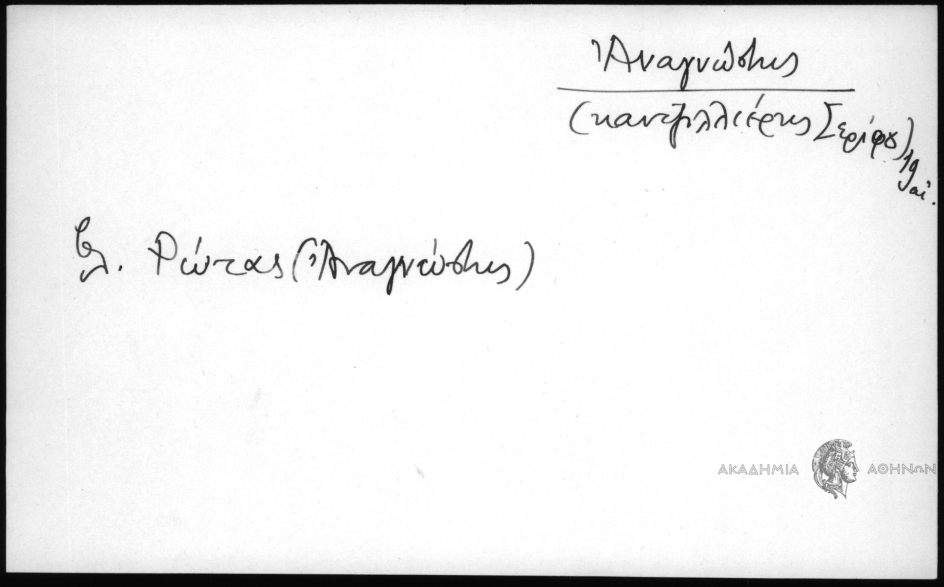 Ἀναγνώστης
(καντζιλλιέρης Σερίφου) 19 αἰ.
βλ. Ρώτας (Ἀναγνώστης)
ΑΚΑΔΗΜΙΑ ΑΘΗΝΩΝ